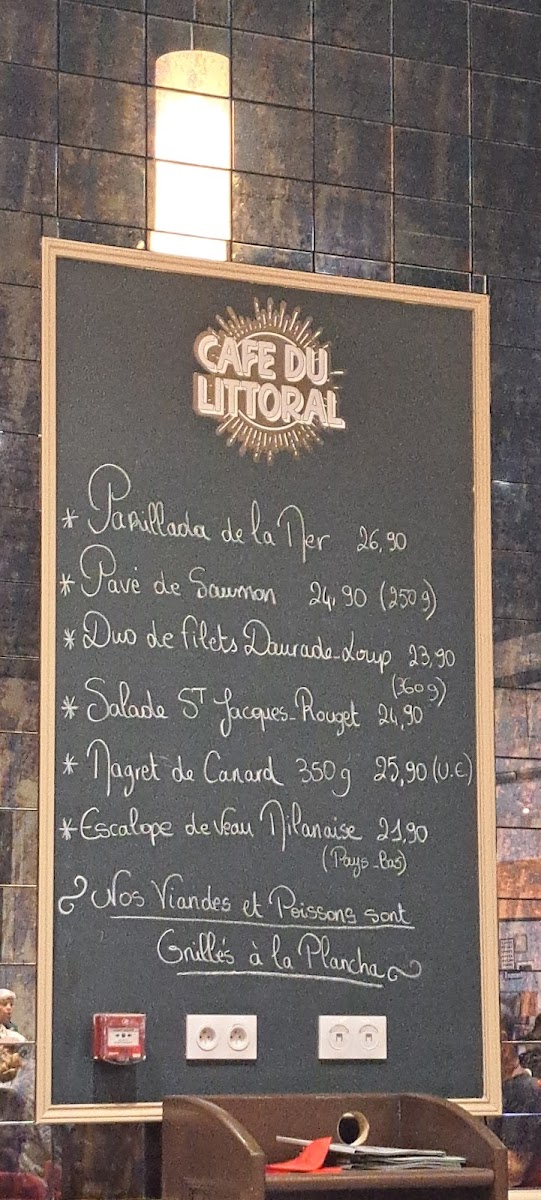 CAFE DU
LITTORAL
* Parillada de la Mer 26,90
* Pavé de Saumon 24,90 (250g)
* Duo de filets Daurade-Loup 23,90
(360g)
* Salade ST Jacques-Rouget 24,90
* Magret de Canard 350g 25,90 (U.E)
* Escalope de veau Milanaise 21,90
(Pays-bas)
Nos Viandes et Poissons sont
Grillés à la Plancha